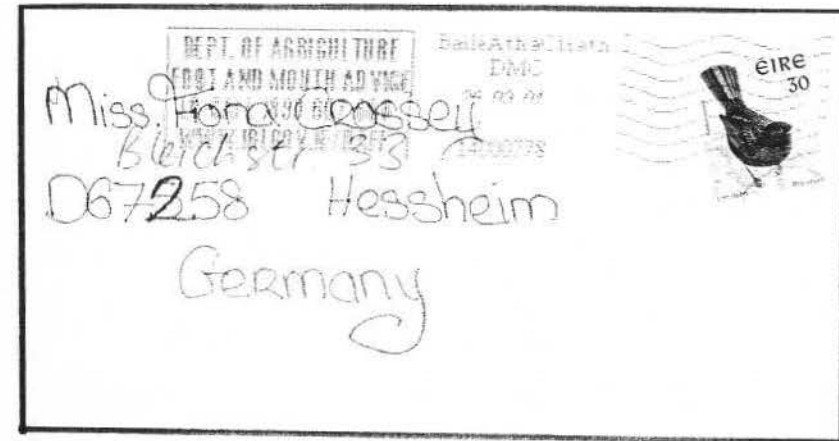 DEPT. OF AGRICULTURE
FOOT AND MOUTH ADVICE
Baile Atha Cliath
DMC
14000778
ÉIRE
30
Miss Fiona Crossey
Bleichstr 33
D67258 Hessheim
Germany